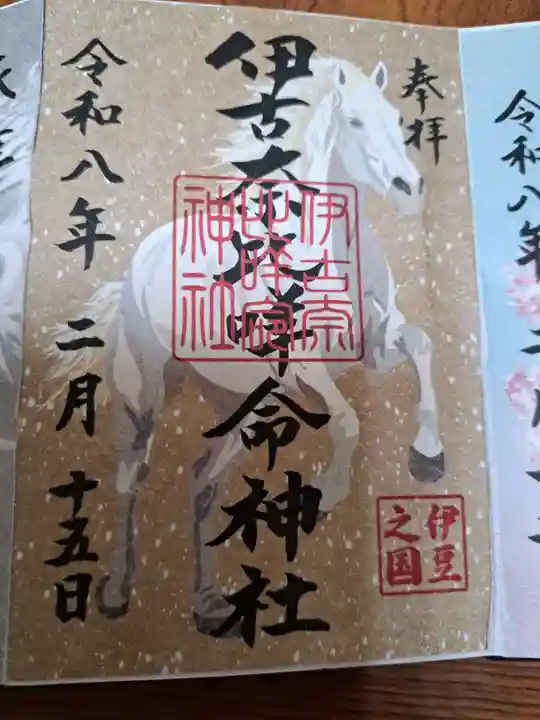 令和八年 二月 十
奉拝
伊古奈比咩命神社
伊古奈
比咩命
神社
伊豆
之国
令和八年 二月 十五日